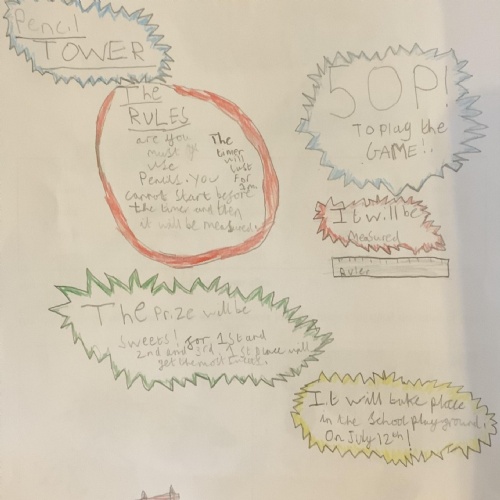 Pencil
TOWER
The
RULES
are you
must
use
Pencils. You
cannot start before
the timer and then
it will be measured.
The
timer
will
last
for
3m
50P!
To play the
GAME!.
It will be
Measured
Ruler
The Prize will be
sweets! for 1st and
2nd and 3rd. 1st place will
get the most sweets.
It will take place
in the school playground.
On July 12th!